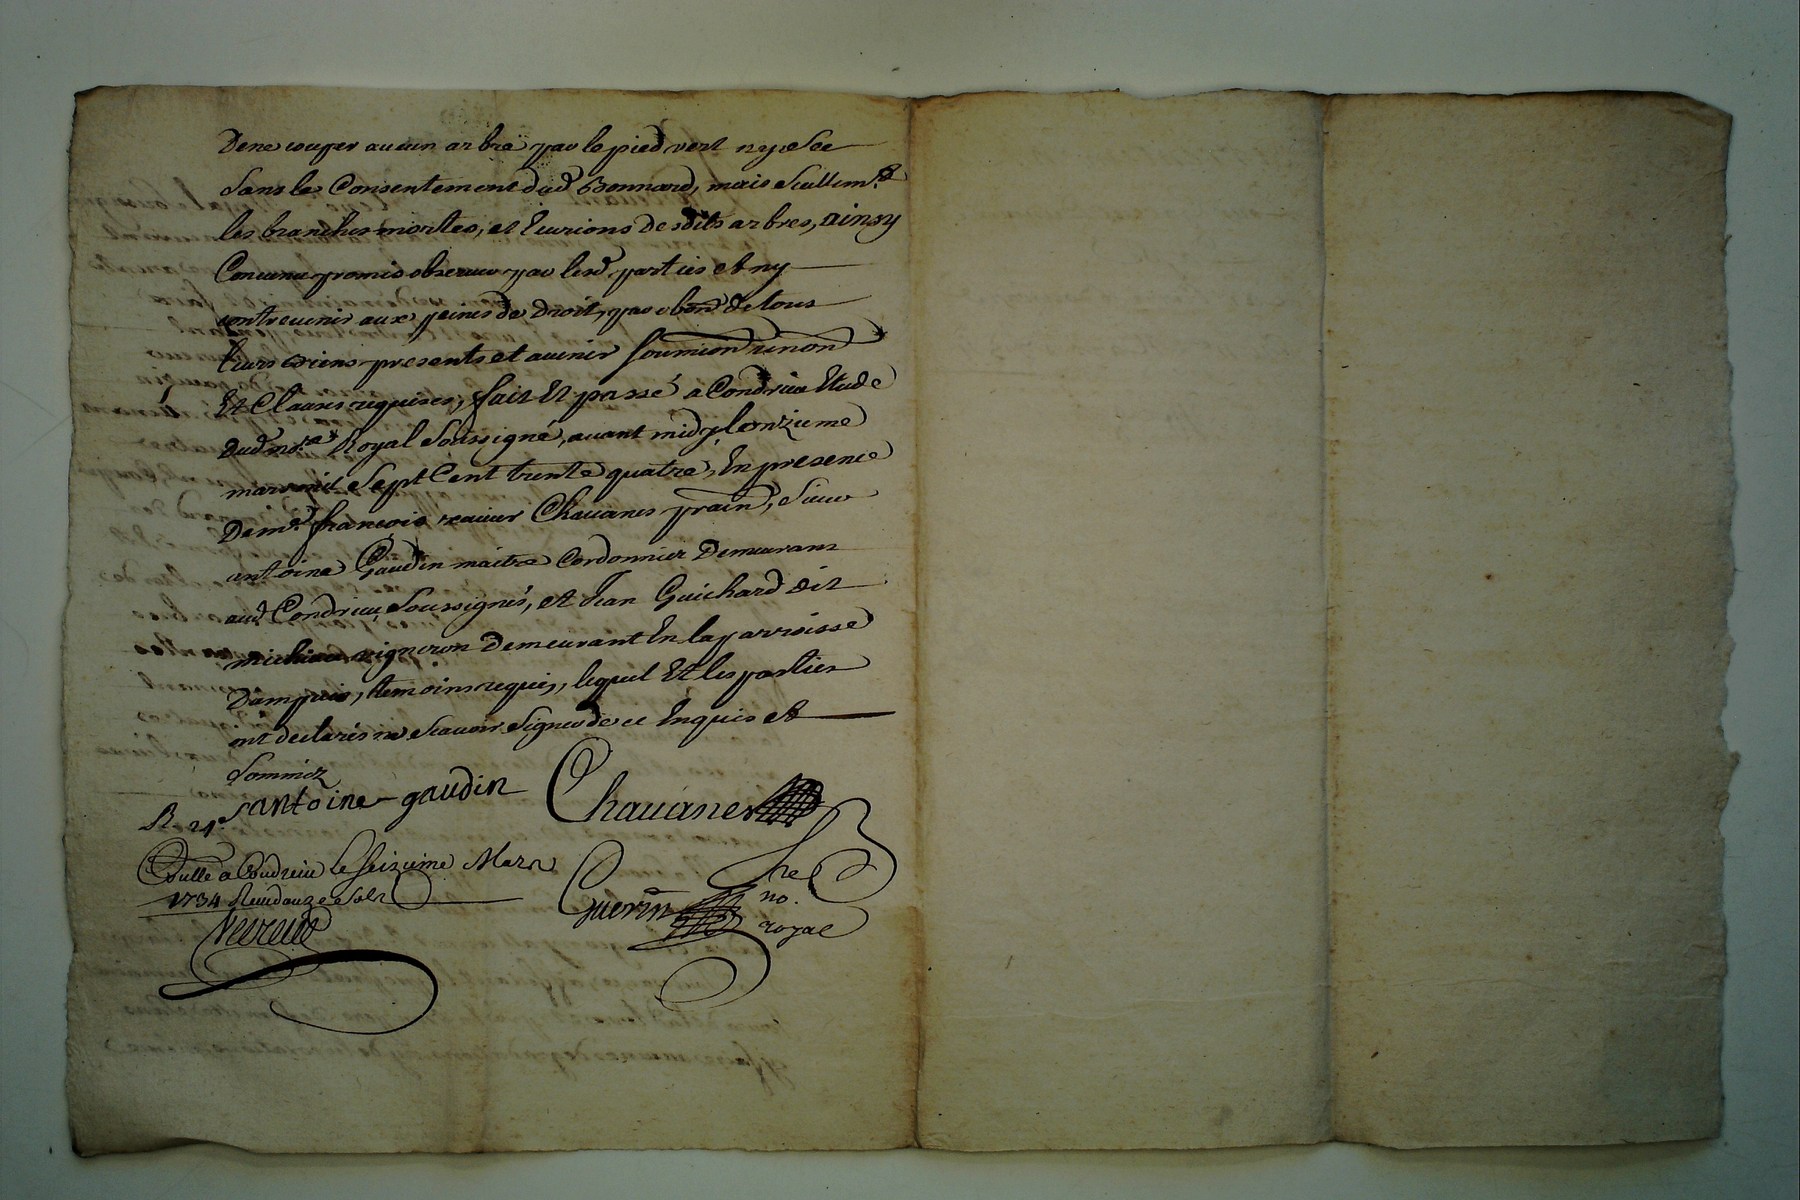 De ne couper aucun arbre par le pied vert ny sec
sans le Consentement dud Bonnard, mais seullemt
les branches mortes, et Eurions desdits arbres, ainsy
Convenu promis observer par lesd parties et ny
contrevenir aux peines de Droit, par obon de tous
leurs Biens presents et avenir soumion renon
Et Clauses requises, fait Et passé a Condrieu Etude
Dud nore Royal Soussigné, avant midy le onzieme
mars mil Sept Cent trente quatre, En presence
De mre françois xavier Chavanes prain, Sieur
antoine Gaudin maitre Cordonnier Demeurans
aud Condrieu, Soussignés, et Jean Guichard dit
vigneron Demeurant En la parroisse
Dampuis, temoins requis, lequel Et les parties
ont declarés ne scavoir signer de ce Enquis et
sommez
antoine gaudin Chavanes
R 24s
Cullé a Condrieu le seizieme Mars
1734 Receu douze sols
Guerin nore royal